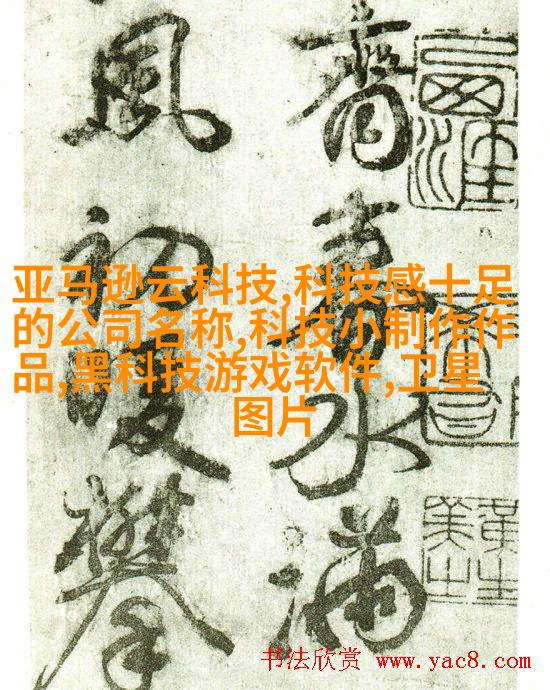 齊春水滿
風初暖攀
亚马逊云科技,科技感十足
的公司名称,科技小制作作
品,黑科技游戏软件,卫星
图片
书法欣赏 www.yac8.com